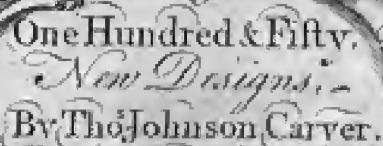 One Hundred & Fifty.
New Designs,
By Tho.s Johnson Carver.